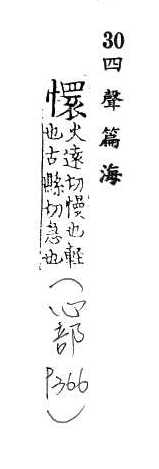 30四聲篇海
懁火遠切慢也輕
也古縣切急也
(心部P366)